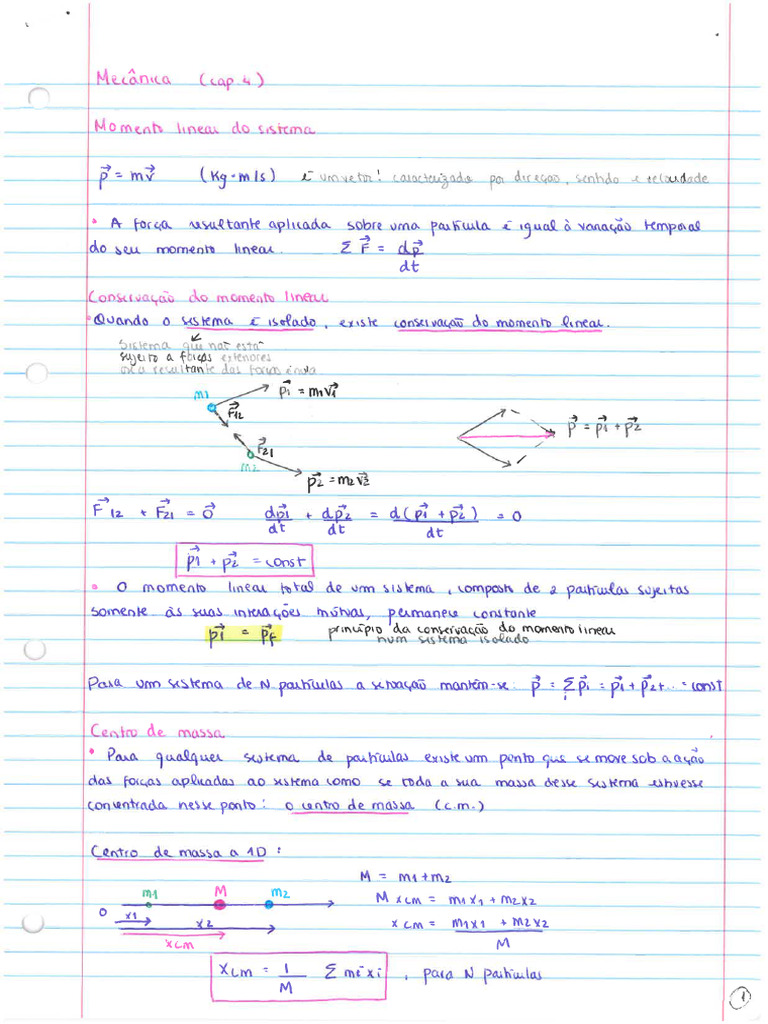 Mecânica (cap. 4)
Momento linear do sistema
p⃗ = mv⃗ (Kg·m/s) é um vetor! caracterizado por direção, sentido e velocidade
• A força resultante aplicada sobre uma partícula é igual à variação temporal
do seu momento linear. Σ F⃗ = dp⃗/dt
Conservação do momento linear
• Quando o sistema é isolado, existe conservação do momento linear.
Sistema que não está
sujeito a forças exteriores
ou a resultante das forças é nula
m1
p⃗1 = m1v⃗1
F⃗12
F⃗21
m2
p⃗2 = m2v⃗2
p⃗ = p⃗1 + p⃗2
F⃗12 + F⃗21 = 0⃗ dp⃗1/dt + dp⃗2/dt = d(p⃗1 + p⃗2)/dt = 0
p⃗1 + p⃗2 = const
• O momento linear total de um sistema, composto de 2 partículas sujeitas
somente às suas interações mútuas, permanece constante
p⃗i = p⃗f princípio da conservação do momento linear
num sistema isolado
Para um sistema de N partículas a situação mantém-se: p⃗ = Σi p⃗i = p⃗1 + p⃗2 + ... = const
Centro de massa
• Para qualquer sistema de partículas existe um ponto que se move sob a ação
das forças aplicadas ao sistema como se toda a sua massa desse sistema estivesse
concentrada nesse ponto: o centro de massa (c.m.)
Centro de massa a 1D:
M = m1 + m2
m1 M m2
M xcm = m1x1 + m2x2
0
x1 x2
xcm
xcm = m1x1 + m2x2 / M
xcm = 1/M Σ mi xi , para N partículas
1